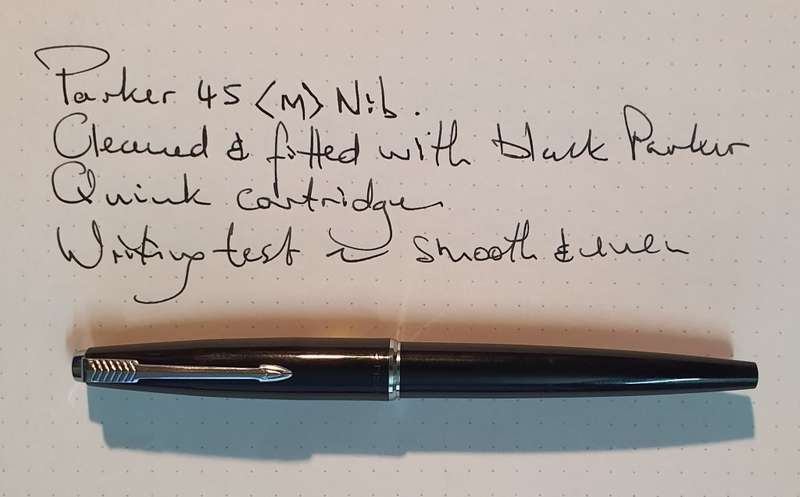 Parker 45 <M> Nib.
Cleaned & fitted with black Parker
Quink cartridge
Writing test ~ smooth & even